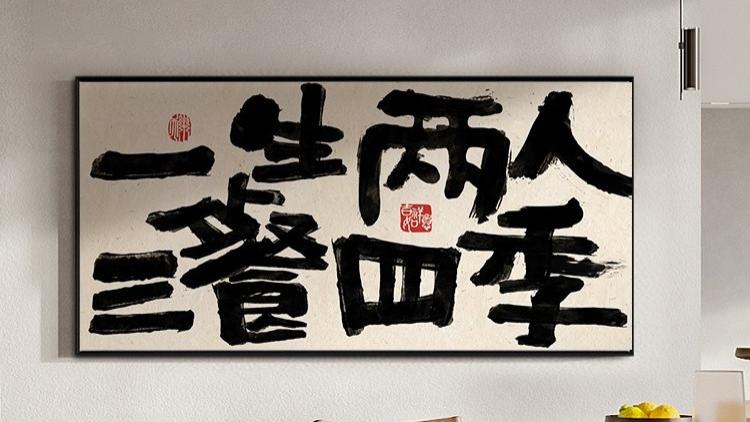 一生两人
三餐四季